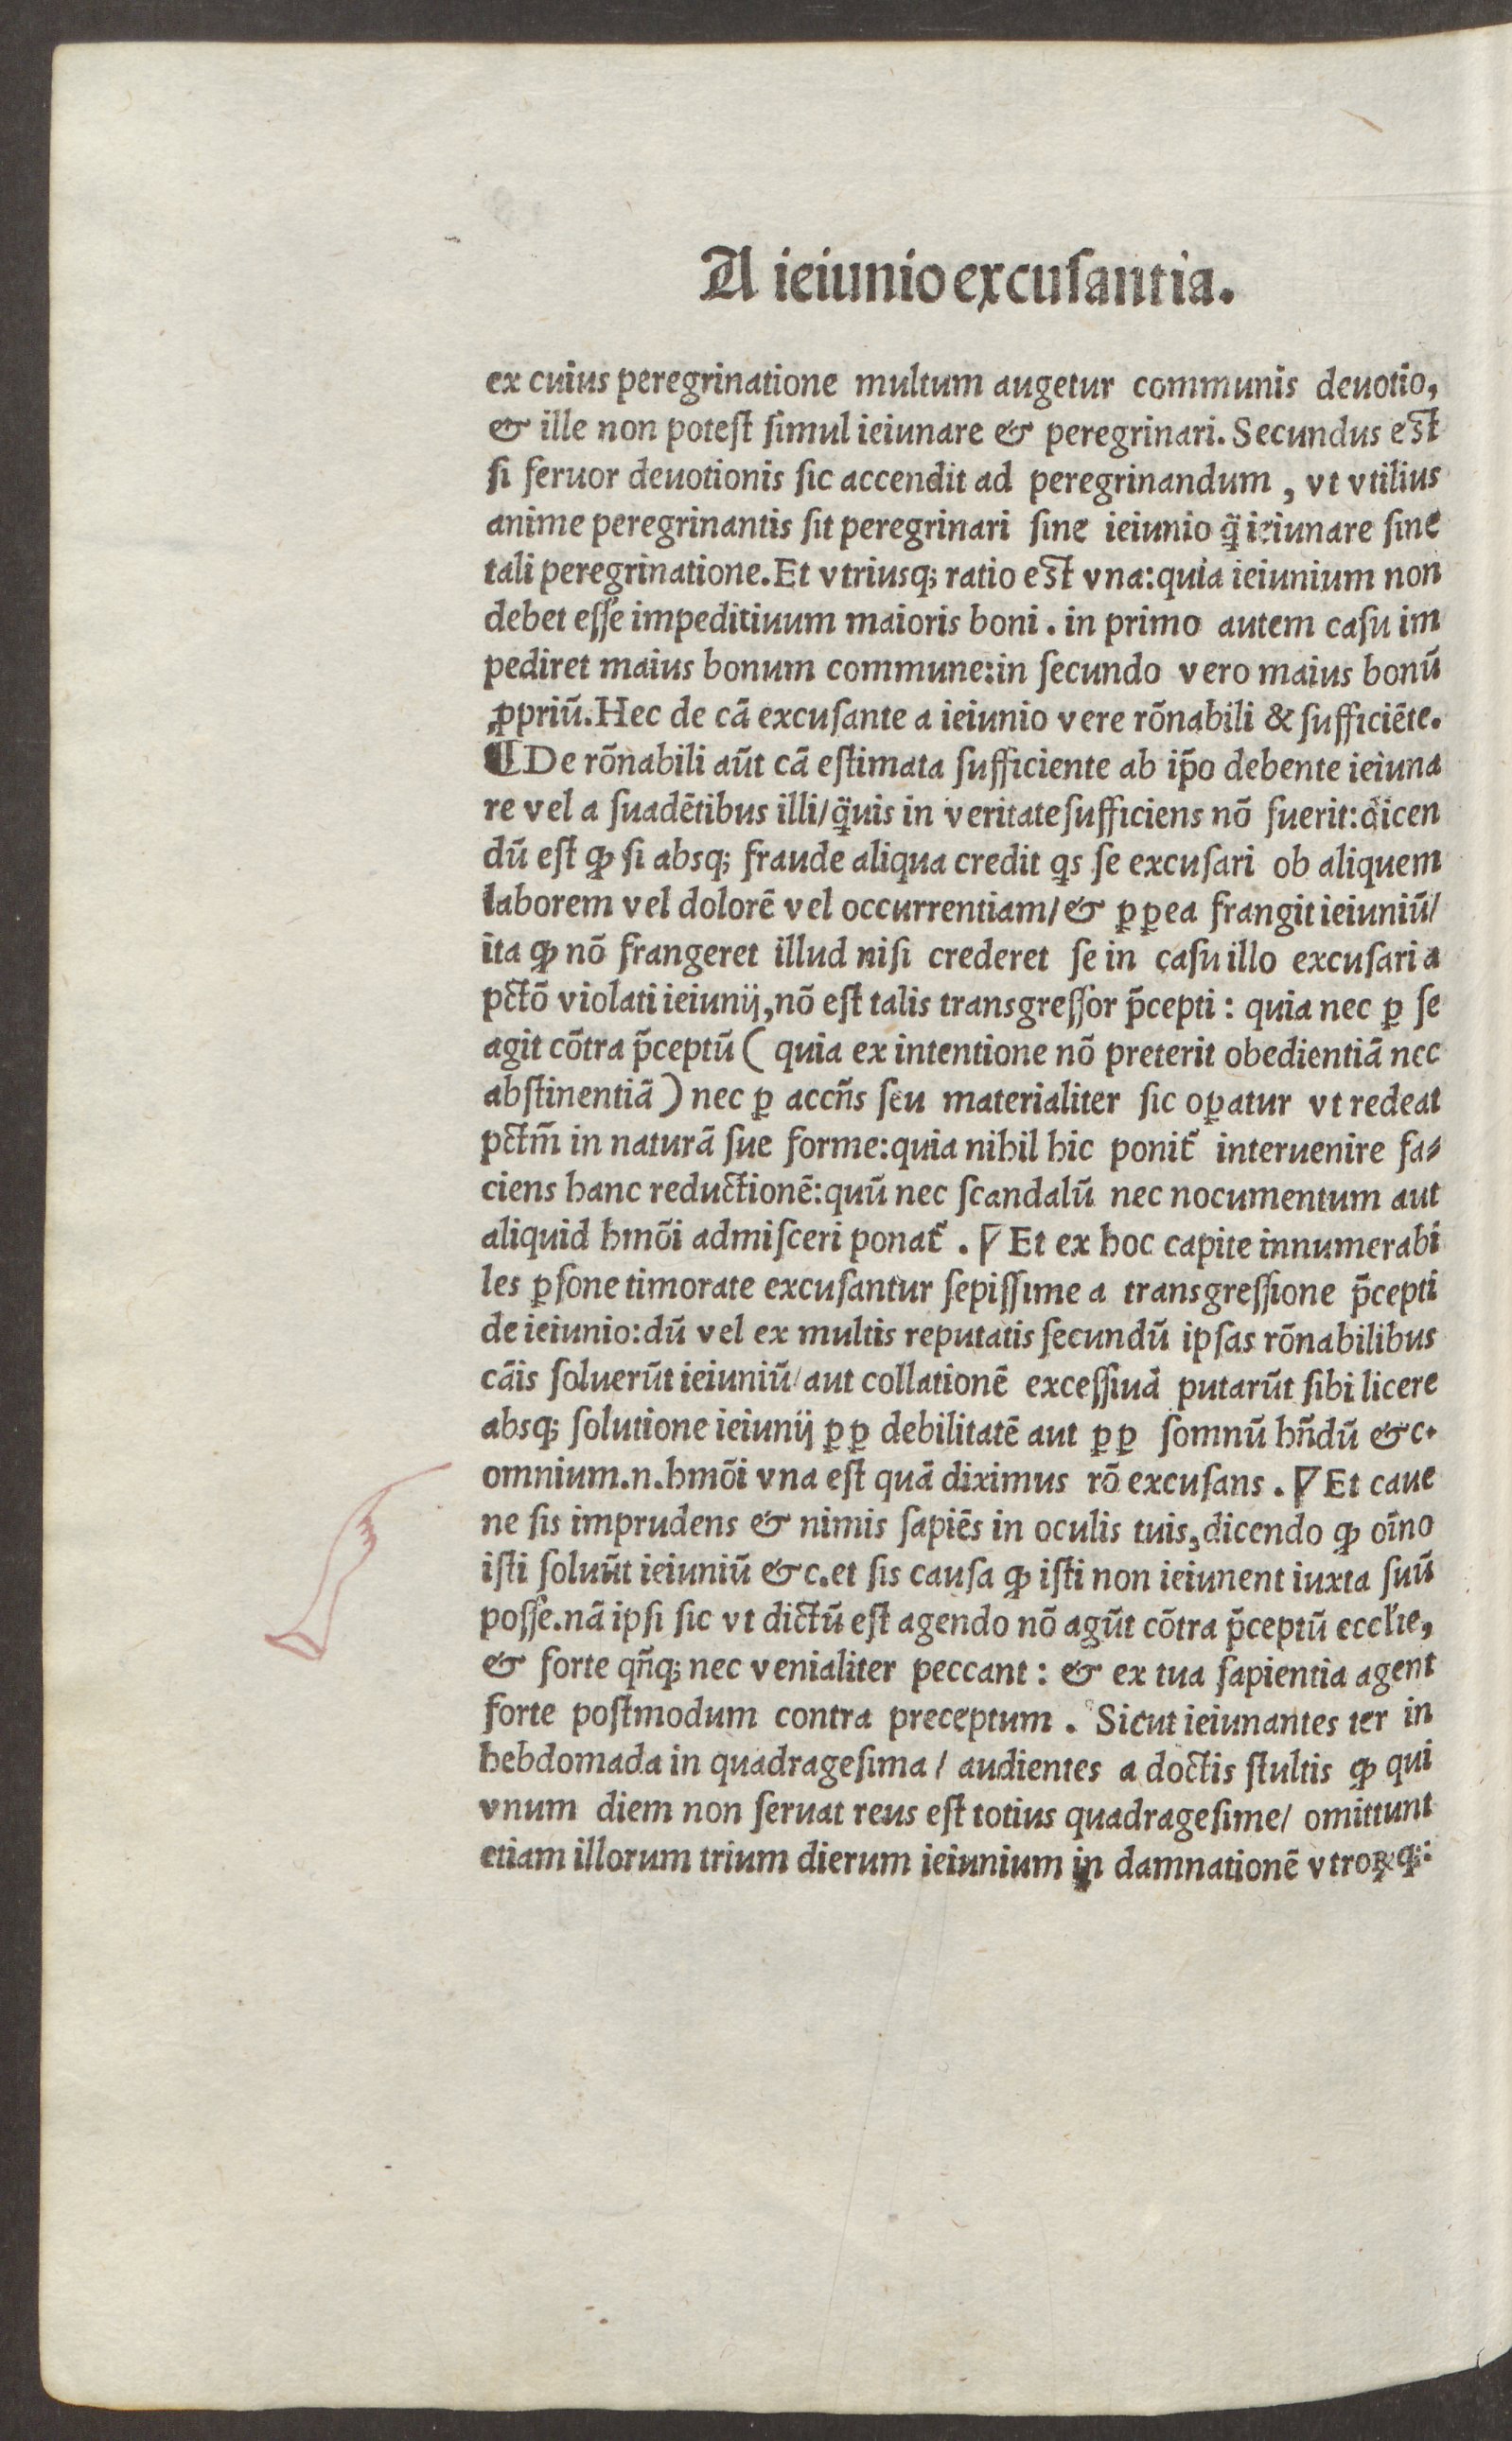 A ieiunio excusantia.
ex cuius peregrinatione multum augetur communis deuotio,
& ille non potest simul ieiunare & peregrinari. Secundus est
si feruor deuotionis sic accendit ad peregrinandum, vt vtilius
anime peregrinantis sit peregrinari sine ieiunio q̃ ieiunare sine
tali peregrinatione. Et vtriusq; ratio est vna: quia ieiunium non
debet esse impeditiuum maioris boni. in primo autem casu im
pediret maius bonum commune: in secundo vero maius bonũ
ꝓpriũ. Hec de cã excusante a ieiunio vere rõnabili & sufficiẽte.
¶ De rõnabili aũt cã estimata sufficiente ab ip̃o debente ieiuna
re vel a suadẽtibus illi/ q̃uis in veritate sufficiens nõ fuerit: dicen
dũ est ꝙ si absq; fraude aliqua credit qs se excusari ob aliquem
laborem vel dolorẽ vel occurrentiam/ & ꝑꝑea frangit ieiuniũ/
ita ꝙ nõ frangeret illud nisi crederet se in casu illo excusari a
pctõ violati ieiunij, nõ est talis transgressor p̃cepti: quia nec ꝑ se
agit cõtra p̃ceptũ ( quia ex intentione nõ preterit obedientiã nec
abstinentiã ) nec ꝑ accñs seu materialiter sic oꝑatur vt redeat
pctm̃ in naturã sue forme: quia nihil hic ponit᷑ interuenire fa⸗
ciens hanc reductionẽ: quũ nec scandalũ nec nocumentum aut
aliquid hmõi admisceri ponat᷑. ⁋ Et ex hoc capite innumerabi
les ꝑsone timorate excusantur sepissime a transgressione p̃cepti
de ieiunio: dũ vel ex multis reputatis secundũ ipsas rõnabilibus
cãis soluerũt ieiuniũ/ aut collationẽ excessiuã putarũt sibi licere
absq; solutione ieiunij ꝑꝑ debilitatẽ aut ꝑꝑ somnũ hñdũ &c.
omnium .n. hmõi vna est quã diximus rõ excusans. ⁋ Et caue
ne sis imprudens & nimis sapiẽs in oculis tuis, dicendo ꝙ oĩno
isti soluũt ieiuniũ &c. et sis causa ꝙ isti non ieiunent iuxta suũ
posse. nã ipsi sic vt dictũ est agendo nõ agũt cõtra p̃ceptũ eccl'ie,
& forte qñq; nec venialiter peccant: & ex tua sapientia agent
forte postmodum contra preceptum. Sicut ieiunantes ter in
hebdomada in quadragesima/ audientes a doctis stultis ꝙ qui
vnum diem non seruat reus est totius quadragesime/ omittunt
etiam illorum trium dierum ieiunium in damnationẽ vtroꝝq;: